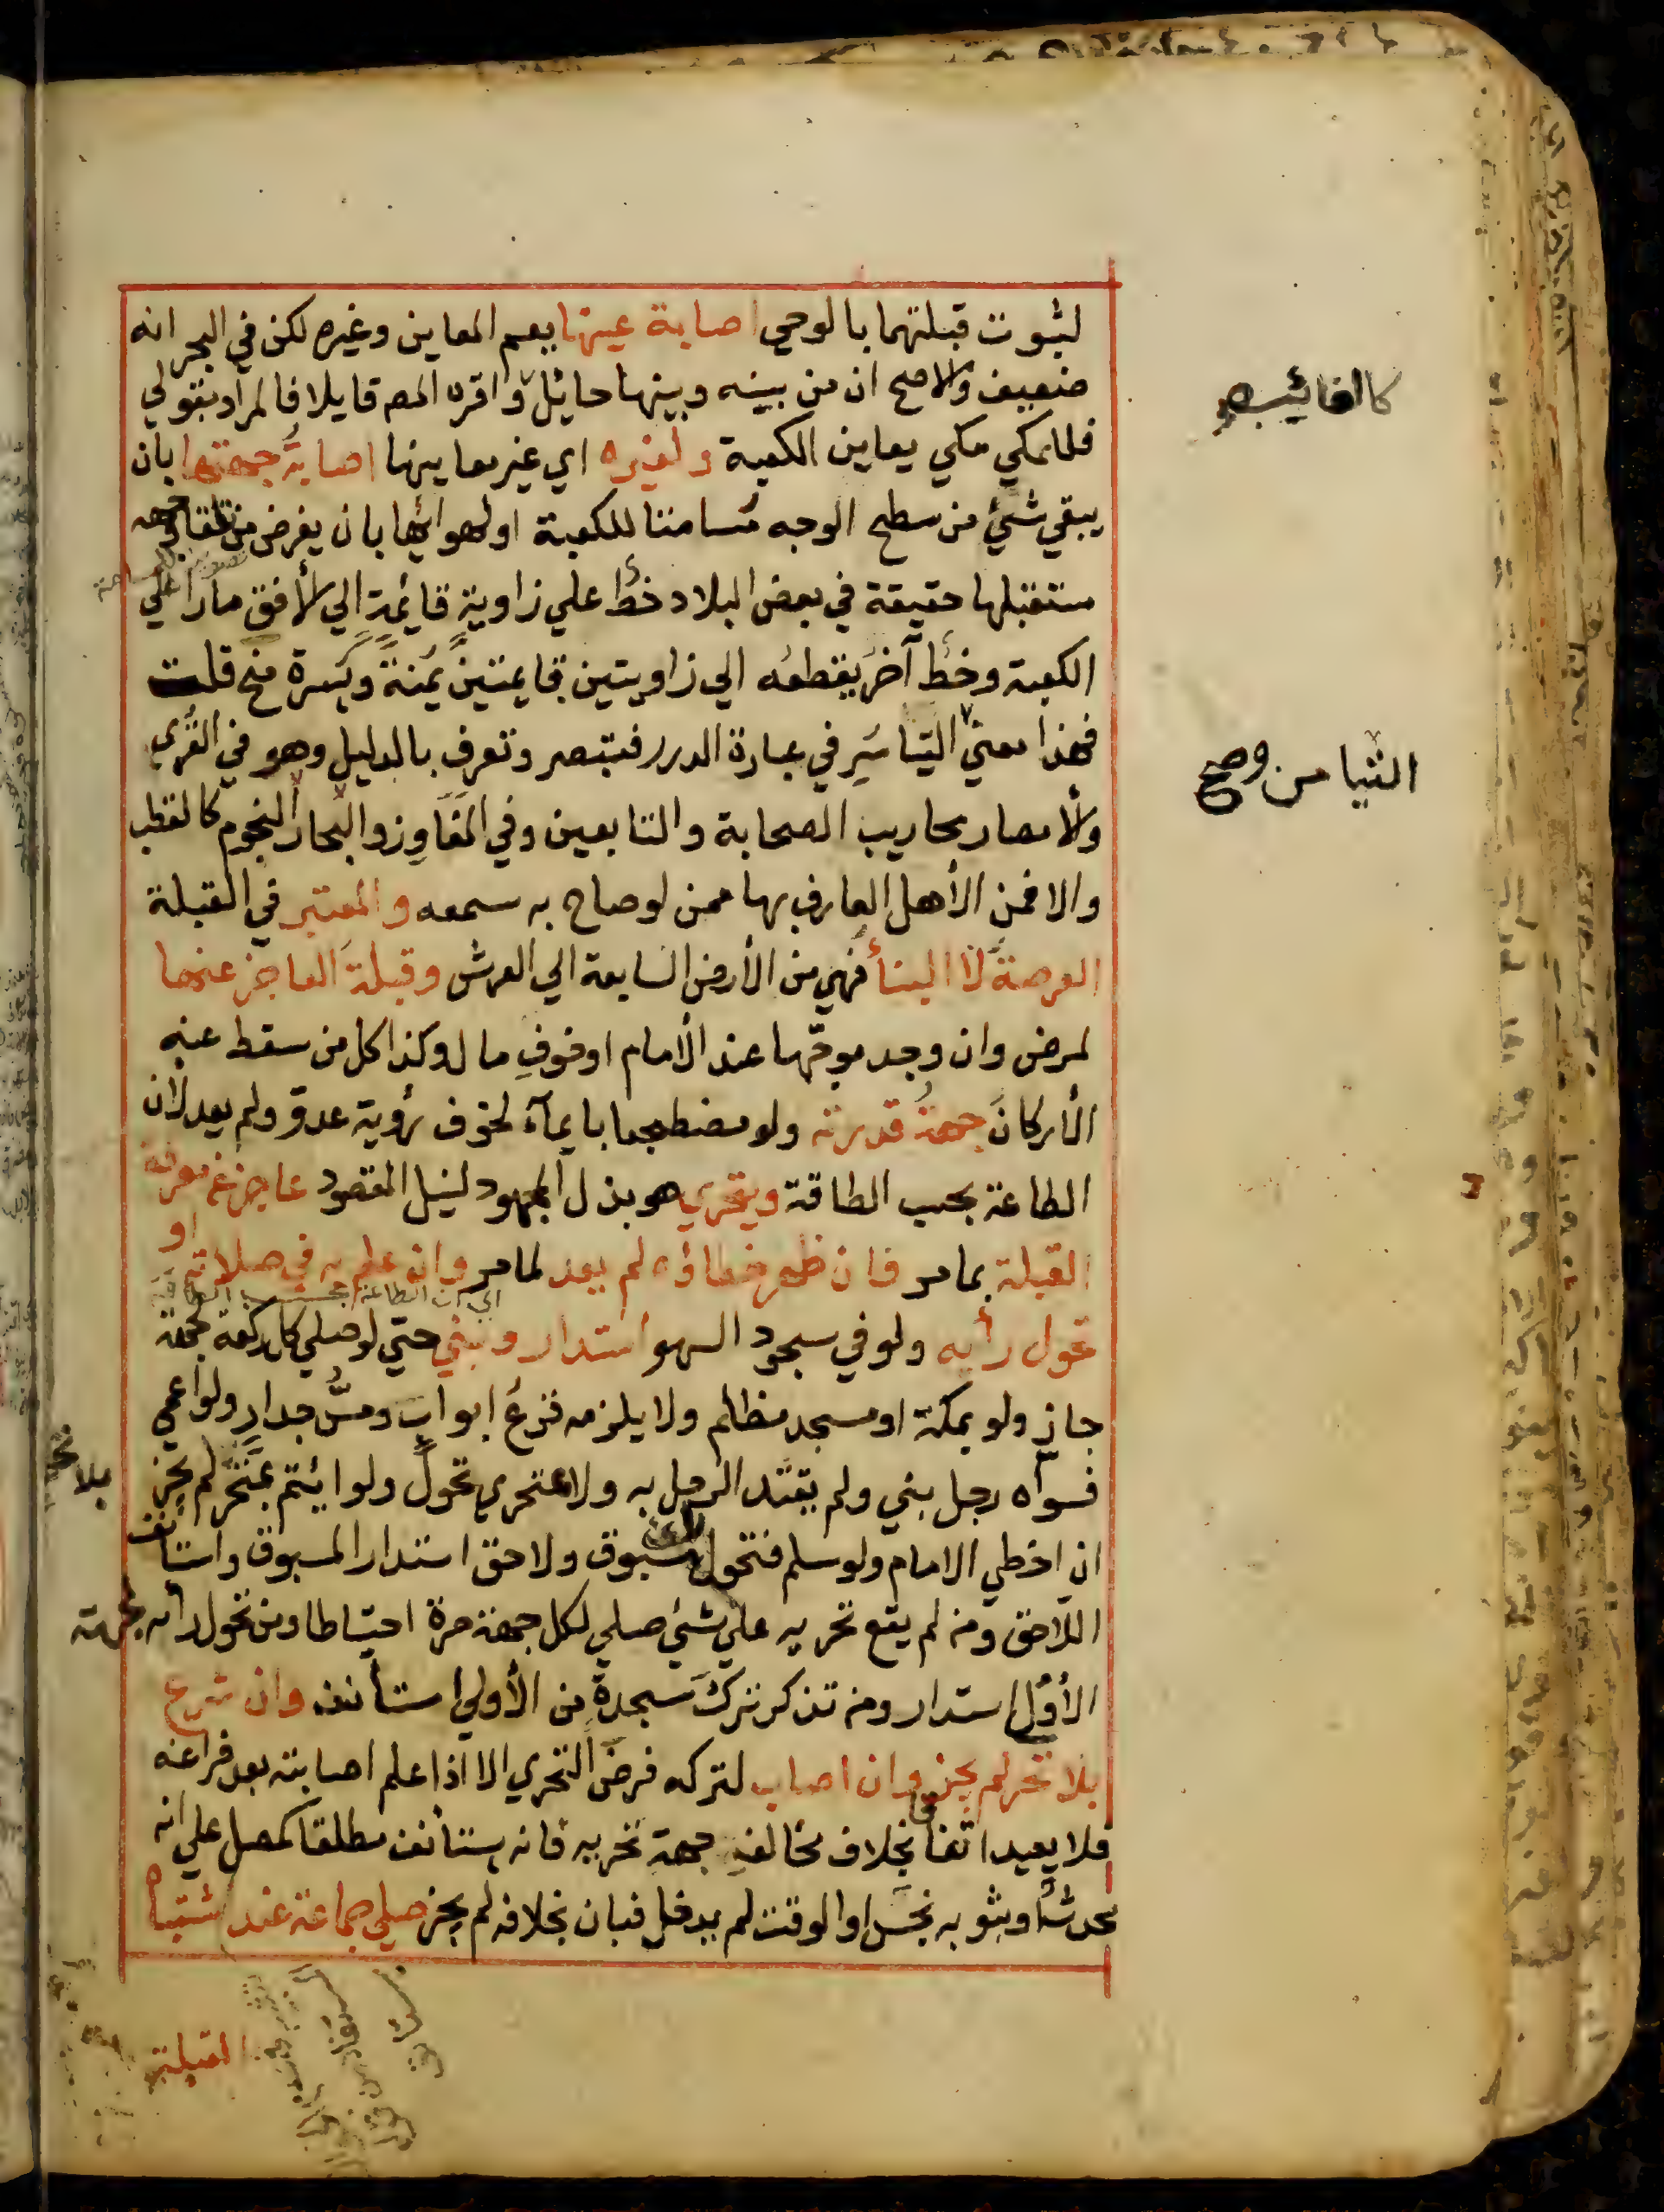 لثبوت قبلتهما بالوحي اصابة عينها يعم المعاين وغيره لكن في البحر انه
ضعيف والاصح ان من بينه وبينها حائل واقره المص قايلا فالمراد بقولي
كالغائب
فللمكي مكي يعاين الكعبة ولغيره اي غير معاينها اصابة جهتها بان
يبقي شئ من سطح الوجه مسامتا للكعبة او لهوائها بان يفرض من تلقاء وجه
مستقبلها حقيقة في بعض البلاد خط علي زاوية قائمة الي الأفق مارا علي
الكعبة وخط آخر يقطعه الي زاويتين قايمتين يمنة ويسرة منح قلت
فهذا معني التياسر في عبارة الدرر فتبصر وتعرف بالدليل وهو في القري
التيامن و صح
والأمصار محاريب الصحابة والتابعين وفي المفاوز والبحار النجوم كالقطب
والا فمن الأهل العارف بها ممن لو صاح به سمعه والمعتبر في القبلة
العرصة لا البناء فهي من الأرض السابعة الي العرش وقبلة العاجز عنها
لمرض وان وجد موجها عند الامام او خوف مال وكذا كل من سقط عنه
الأركان جهة قدرته ولو مضطجعا بايمآء لخوف رؤية عدو ولم يعد لان
الطاعة بحسب الطاقة ويتحري هو بذل المجهود لنيل المقصود عاجز عن معرفة
القبلة بما مر فان ظهر خطاؤه لم يعد لما مر وان علم به في صلاته او
اي ان الطاعة بحسب الطاقة
تحول رأيه ولو في سجود السهو استدار وبني حتي لو صلي كل ركعة لجهة
جاز ولو بمكة او مسجد مظلم ولا يلزمه قرع ابواب ومس جدار ولو اعمي
فسواه رجل بني ولم يقتد الرجل به ولا بمتحري تحول ولو ائتم بمتحر لم يجز
بلا تحر
ان اخطي الامام ولو سلم فتحول مسبوق ولاحق استدار المسبوق واستأنف
اللاحق ومن لم يقع تحريه علي شئ صلي لكل جهة مرة احتياطا ومن تحول رأيه لجهته
الأولي استدار ومن تذكر ترك سجدة من الأولي استأنف وان شرع
بلا تحر لم يجز وان اصاب لتركه فرض التحري الا اذا علم اصابته بعد فراغه
فلا يعيد اتفاقا بخلاف مخالف جهة تحريه فانه يستأنف مطلقا كمصل علي انه
محدث او ثوبه نجس او الوقت لم يدخل فبان بخلافه لم يجز صلي جماعة عند اشتباه
القبلة